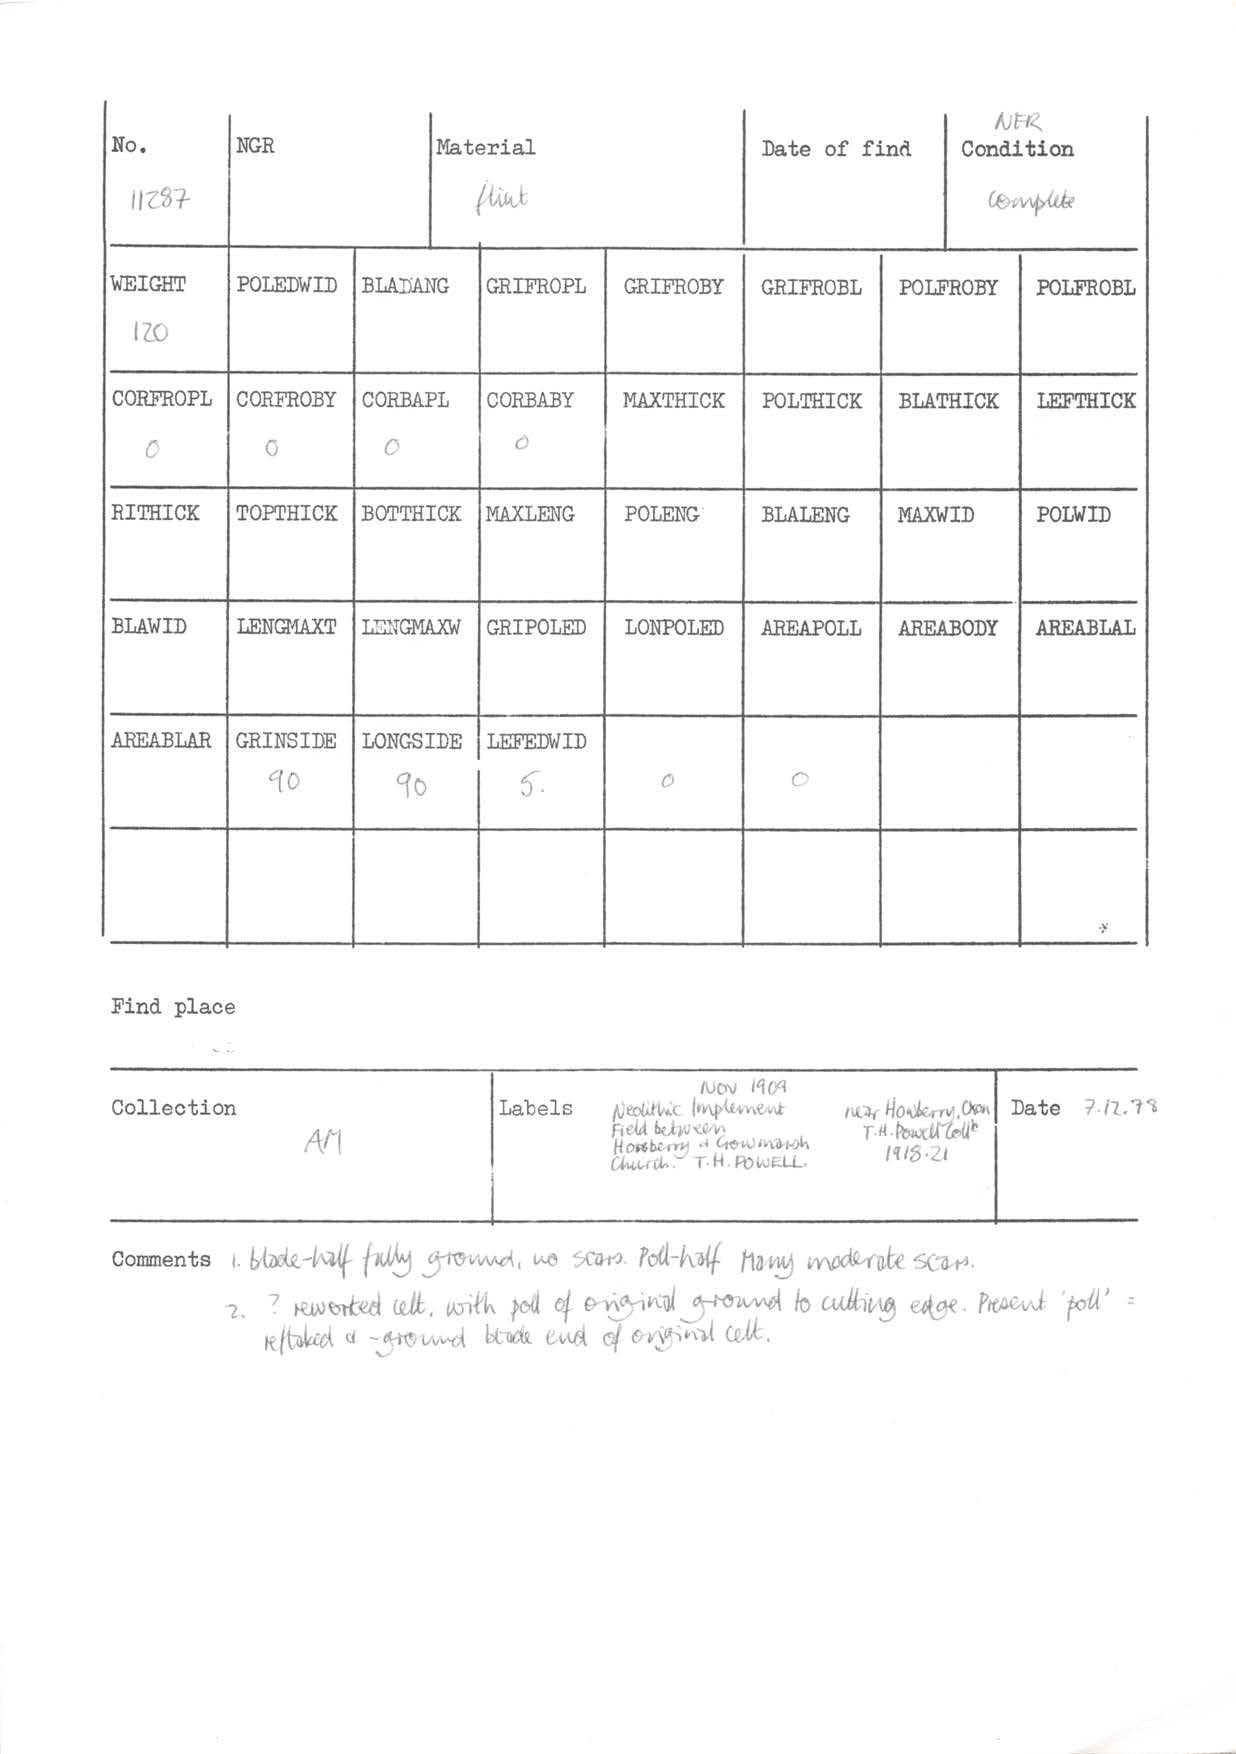 NFR
No. NGR Material Date of find Condition
11287 flint complete
WEIGHT POLEDWID BLADANG GRIFROPL GRIFROBY GRIFROBL POLFROBY POLFROBL
120
CORFROPL CORFROBY CORBAPL CORBABY MAXTHICK POLTHICK BLATHICK LEFTHICK
0 0 0 0
RITHICK TOPTHICK BOTTHICK MAXLENG POLENG BLALENG MAXWID POLWID
BLAWID LENGMAXT LENGMAXW GRIPOLED LONPOLED AREAPOLL AREABODY AREABLAL
AREABLAR GRINSIDE LONGSIDE LEFEDWID
90 90 5. 0 0
Find place
Collection
AM
Labels
Nov 1909
Neolithic Implement
Field between
Howberry & Crowmarsh
Church. T.H. POWELL.
near Howberry, Oxon
T.H. Powell Colln
1918.21
Date 7.12.78
Comments 1. blade-half fully ground, no scars. Poll-half Many moderate scars.
2. ? reworked celt, with poll of original ground to cutting edge. Present 'poll' =
reflaked & -ground blade end of original celt.